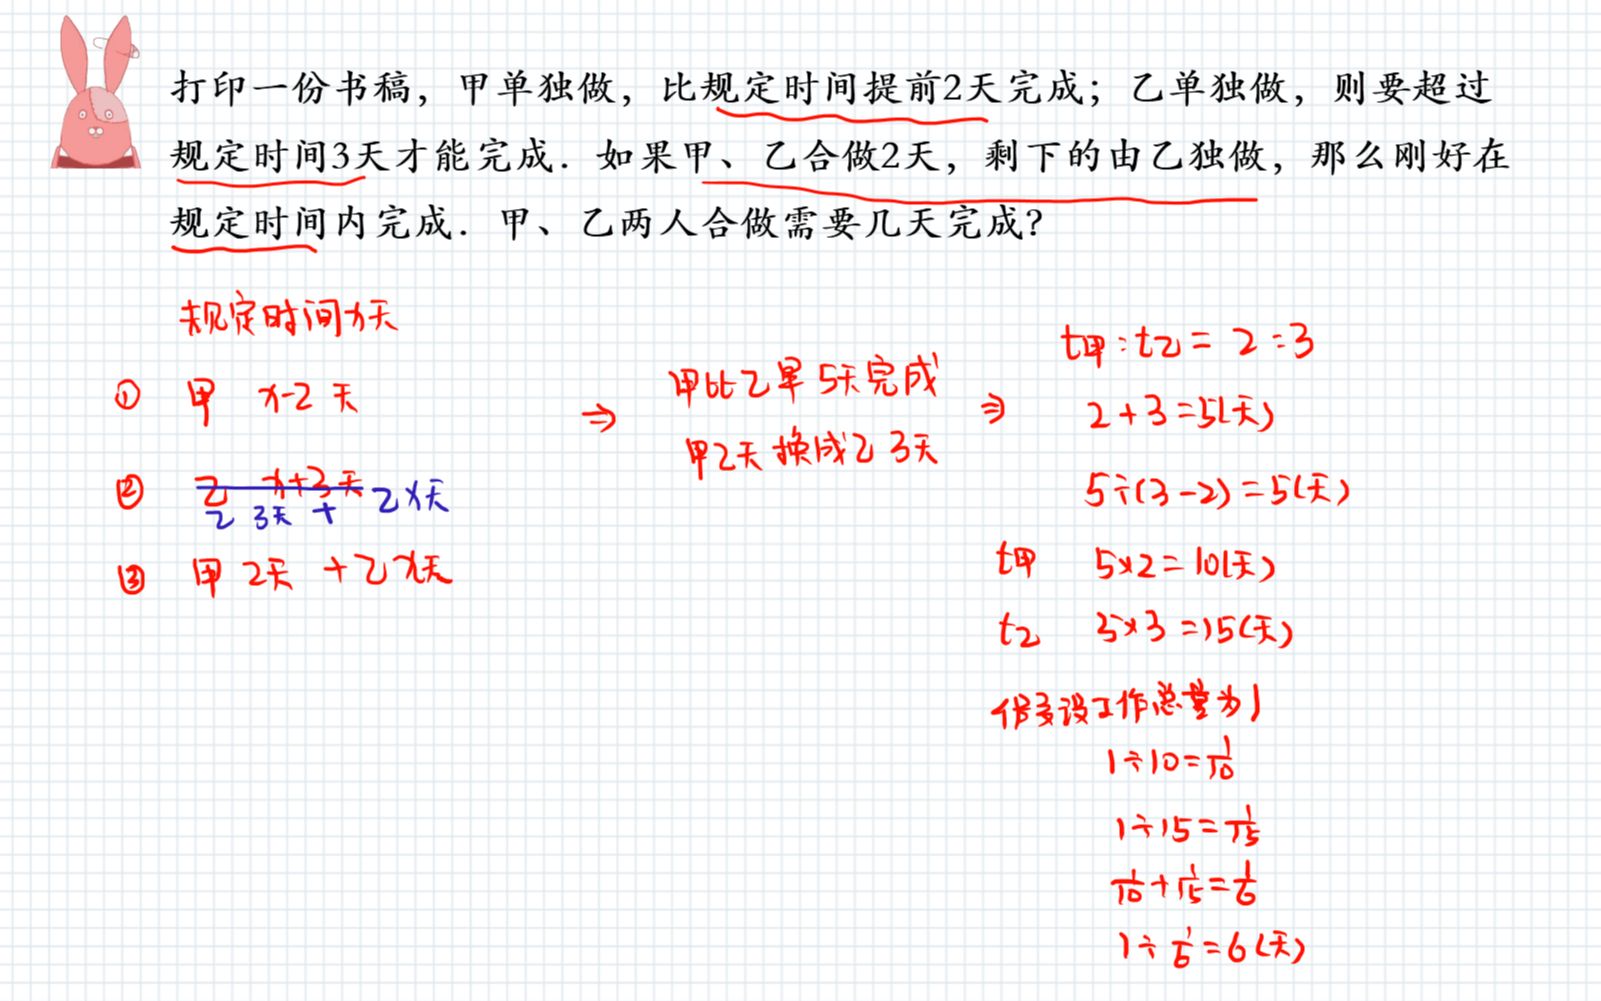 打印一份书稿，甲单独做，比规定时间提前2天完成；乙单独做，则要超过
规定时间3天才能完成．如果甲、乙合做2天，剩下的由乙独做，那么刚好在
规定时间内完成．甲、乙两人合做需要几天完成？
规定时间x天
① 甲 x-2 天
② 乙 x+3 天
乙 3天 + 乙 x天
③ 甲 2天 + 乙 x天
⇒
甲比乙早5天完成
甲2天换成乙3天
⇒
t甲:t乙=2:3
2+3=5(天)
5÷(3-2)=5(天)
t甲 5×2=10(天)
t乙 5×3=15(天)
假设工作总量为1
1÷10=1/10
1÷15=1/15
1/10+1/15=1/6
1÷1/6=6(天)